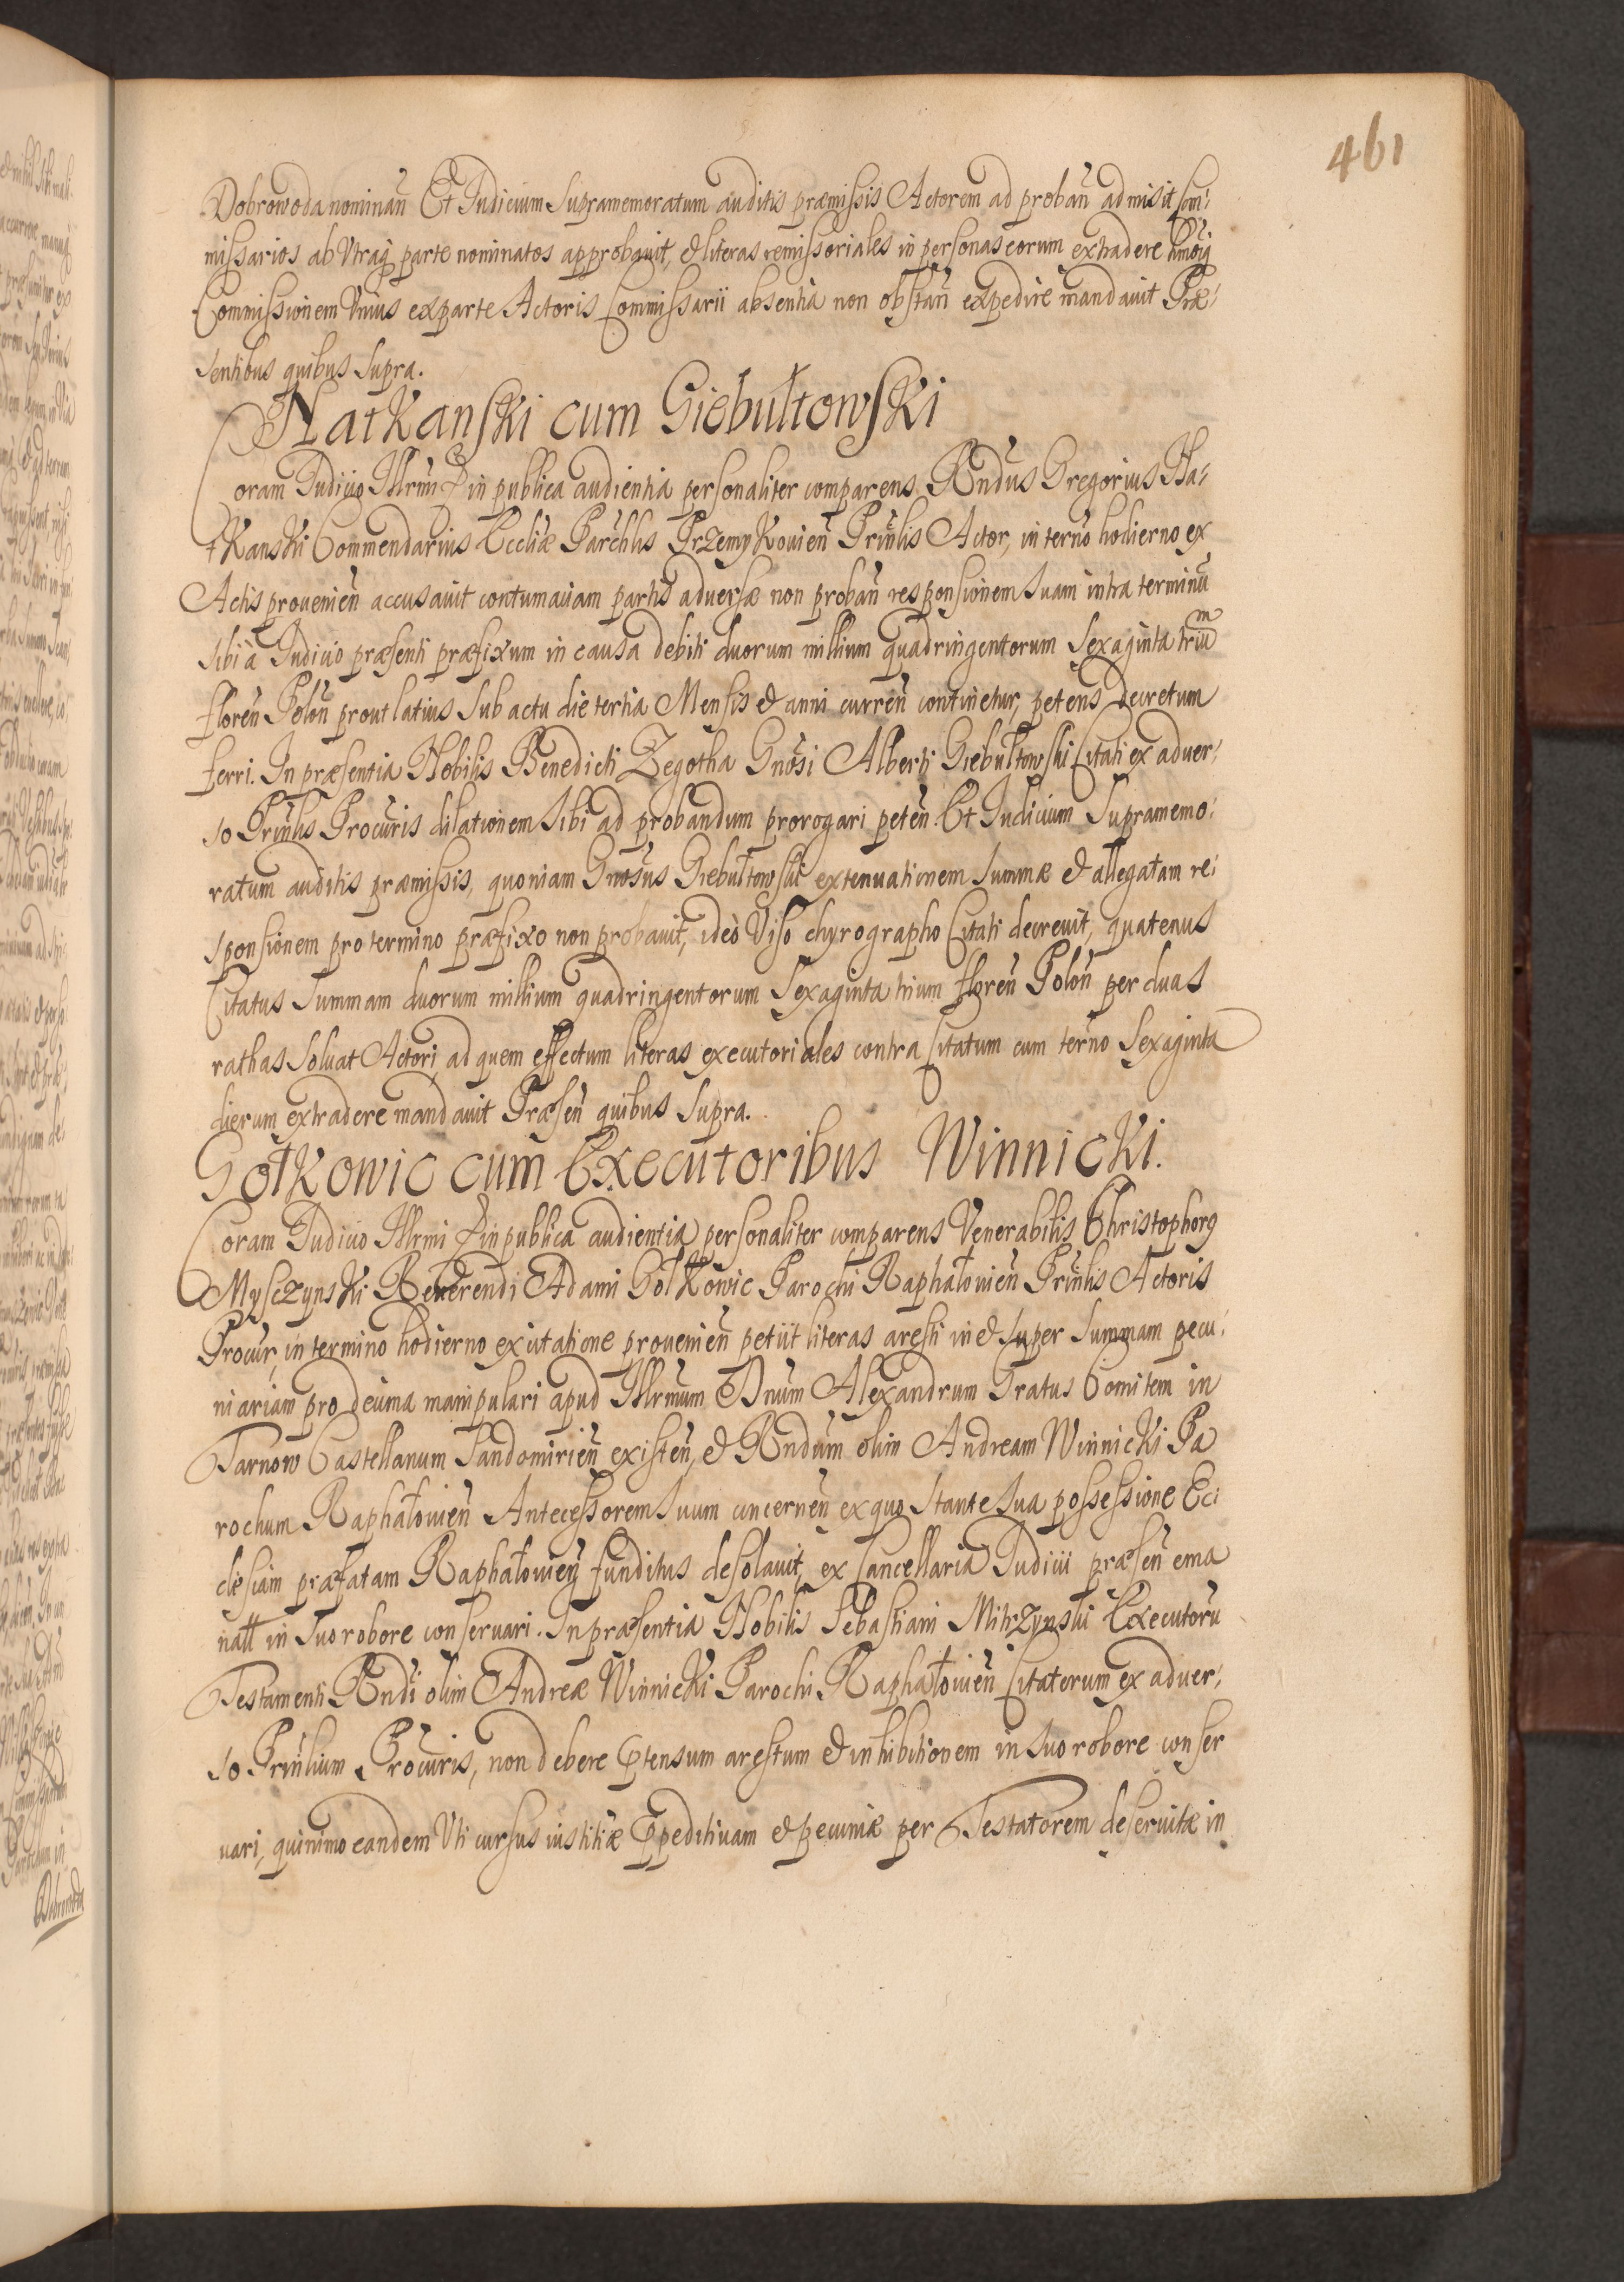 461
Dobrowoda nominan̄ Et Iudicium Supramemoratum auditis præmissis Actorem ad proban̄ admisit Com-
missarios ab Vtraq; parte nominatos approbauit, & literas remissoriales in personas eorum extradere
Commissionem Vnius ex parte Actoris Commissarii absentia non obstan̄ expedire mandauit Præ-
sentibus quibus supra.
Natkanski cum Giebułtowski
Coram Iudicio Illrmi D in publica audientia personaliter comparens Rndus Gregorius Na-
tkanski Commendarius Eccliæ Parchlis Przemykouien̄ Prinlis Actor, in terno hodierno ex
Actis prouenien̄ accusauit contumaciam partis aduersæ non proban̄ responsionem suam intra terminū
sibi à Iudicio præsenti præfixum in causa debiti duorum millium quadringentorum sexaginta trium
floren̄ Polon̄ prout latius sub actu die tertia Mensis & anni curren̄ continetur, petens decretum
ferri. In præsentia Nobilis Benedicti Zegotha Gnosi Alberti Giebułtowski Citati ex aduer-
so Prinlis Procuris dilationem sibi ad probandum prorogari peten̄. Et Iudicium Supramemo-
ratum auditis præmissis, quoniam Gnosus Giebułtowski extenuationem summæ & allegatam re-
sponsionem pro termino præfixo non probauit, ideò Viso chyrographo Citati decreuit, quatenus
Citatus summam duorum millium quadringentorum sexaginta trium floren̄ Polon̄ per duas
rathas soluat Actori, ad quem effectum literas executoriales contra Citatum cum terno sexaginta
dierum extradere mandauit Præsen̄ quibus supra.
Gołkowic cum Executoribus Winnicki.
Coram Iudicio Illrmi D in publica audientia personaliter comparens Venerabilis Christophorꝯ
Mysczynski Reuerendi Adami Gołkowic Parochi Raphałouien̄ Prinlis Actoris
Procur, in termino hodierno ex citatione prouenien̄ petiit literas aresti in & super summam pecu-
niariam pro decima manipulari apud Illrmum Dnum Alexandrum Gratus Comitem in
Tarnow Castellanum Sandomirien̄ existen̄, & Rndum olim Andream Winnicki Pa
rochum Raphałouien̄ Antecessorem suum concernen̄ ex quo stante sua possessione Ec-
clesiam præfatam Raphałouien̄ funditus desolauit, ex Cancellaria Iudicii præsen̄ ema
natt in suo robore conseruari. In præsentia Nobilis Sebastiani Mitrzynski Executorū
Testamenti Rndi olim Andreæ Winnicki Parochi Raphałouien̄ Citatorum ex aduer-
so Prinlium Procuris, non debere prætensum arestum & inhibitionem in suo robore conser
uari, quinimo eandem Vti cursus iustitiæ præpeditiuam & pecuniæ per Testatorem deseruitæ in